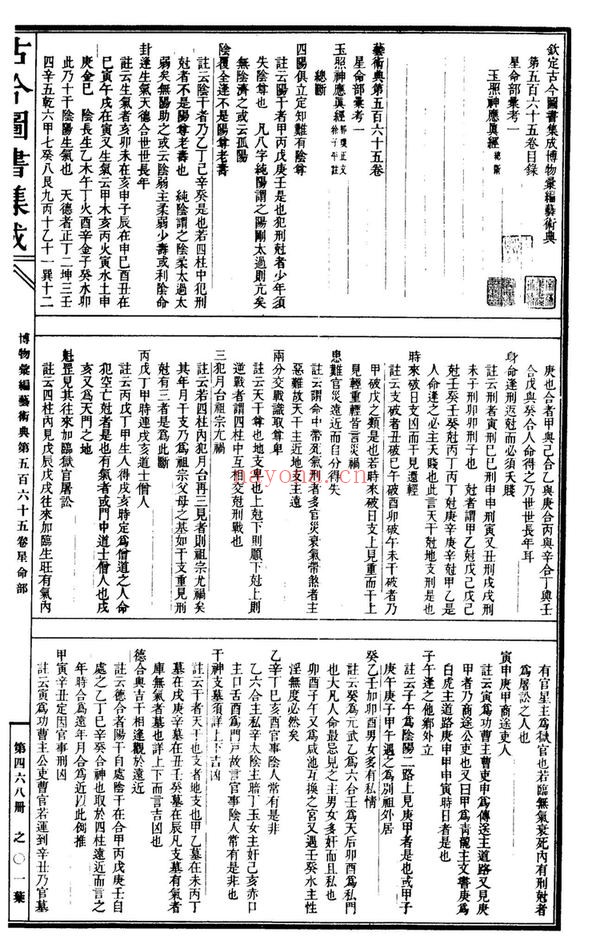 欽定古今圖書集成博物彙編藝術典
第五百六十五卷目錄
星命部彙考一
玉照神應眞經 總斷
藝術典第五百六十五卷
星命部彙考一
玉照神應眞經 郭璞正文 徐子平註
總斷
四陽俱立定知難有陰尊
註云陽干者甲丙戊庚壬是也犯刑剋者少年須
失陰尊也 凡八字純陽謂之陽剛太過則亢矣
無陰濟之或云孤陽
陰覆全逢不是陽尊老壽
註云陰干者乃乙丁己辛癸是也若四柱中犯刑
剋者不是陽尊老壽也 純陰謂之陰柔太過太
弱矣無陽助之或云陰弱主柔弱少壽或利陰命
卦逢生氣天德合世世長年
註云生氣者亥卯未在亥申子辰在申巳酉丑在
巳寅午戌在寅又生氣云甲木亥丙火寅水土申
庚金巳 陰長生乙木午丁火酉辛金子癸水卯
此乃十干陰陽生氣也 天德者正丁二坤三壬
四辛五乾六甲七癸八艮九丙十乙十一巽十二
庚也合者甲與己合乙與庚合丙與辛合丁與壬
合戊與癸合人命得之乃世世長年耳
身命逢刑返剋而必須夭賤
註云刑者寅刑巳巳刑申申刑寅又丑刑戌戌刑
未子刑卯卯刑子也 剋者謂甲剋戊乙剋己戊
剋壬己剋癸丙剋庚丁剋辛庚剋甲辛剋乙是
人命逢之必主夭賤也此言天干剋地支刑是也
時來破日支凶而干見還輕
註云支破者丑破辰巳午破酉卯破午未干破者乃
甲破戊之類是也若時來破日支上見重而干上
見輕輕重皆言災禍
患難官災遠近而自分得失
註云謂命中帶死氣者多官災衰氣帶煞者主
惡難故天干主近地支主遠
兩分交戰識取尊卑
註云天干尊也地支卑也上剋下則順下剋上則
逆戰者謂四柱中互相交剋刑戰也
三犯月台祖宗尤禍
註云若四柱內犯月台再三見者則祖宗尤禍矣
其年月干支乃爲祖宗父母之基如干支重見刑
剋有三者是爲此斷
丙戊丁甲時連戌亥道士僧人
註云丙戊丁甲生人得戌亥時定爲僧道之人命
犯空亡剋者是也有氣者或門中道士僧人也戌
亥又爲天門之地
魁罡見其往來加臨獄官屠訟
註云四柱內見戌辰戌戌往來加臨生旺有氣內
有官星主爲獄官也若臨無氣衰死內有刑剋者
爲屠訟之人也
寅申庚甲商途吏人
註云寅爲功曹主曹吏申爲傳送主道路又見庚
甲者乃商途公吏也又曰甲爲青龍主文書庚爲
白虎主道路庚申甲申寅時日者是也
子午逢之他鄉外立
註云子午爲陰陽二路上見庚甲者是也或甲子
庚午庚子甲午遇之爲別祖外居
癸乙壬加卯酉男女多有私情
註云癸爲元武乙爲六合壬爲天后卯酉爲私門
也大凡人命最忌見之主男女多奸而且私也
卯酉子午又爲咸池互換之宮又遇壬癸水主性
淫無度必然矣
乙辛丁巳亥酉官事陰人常有是非
乙六合主私辛太陰主賭丁玉女主奸己亥亦口
主口舌酉爲門戶故言官事陰人常有是非也
干神支墓須詳上下吉凶
註云干者天干也支者地支也甲乙墓在未丙丁
墓在戌庚辛墓在丑壬癸墓在辰凡支墓有氣者
庫無氣者墓也詳上下而言吉凶也
德合與吉干相逢觀於遠近
註云德合者陽干自處陰干在合甲丙戊庚壬自
處之乙丁巳辛癸合神也取於四柱遠近而言之
年時合爲遠年月合爲近以此例推
甲寅辛丑定因官事刑凶
註云寅爲功曹主公吏曹官若運到辛丑乃官墓
古今圖書集成
博物彙編藝術典第五百六十五卷星命部
第四六八冊 之〇一葉
nayona.cn